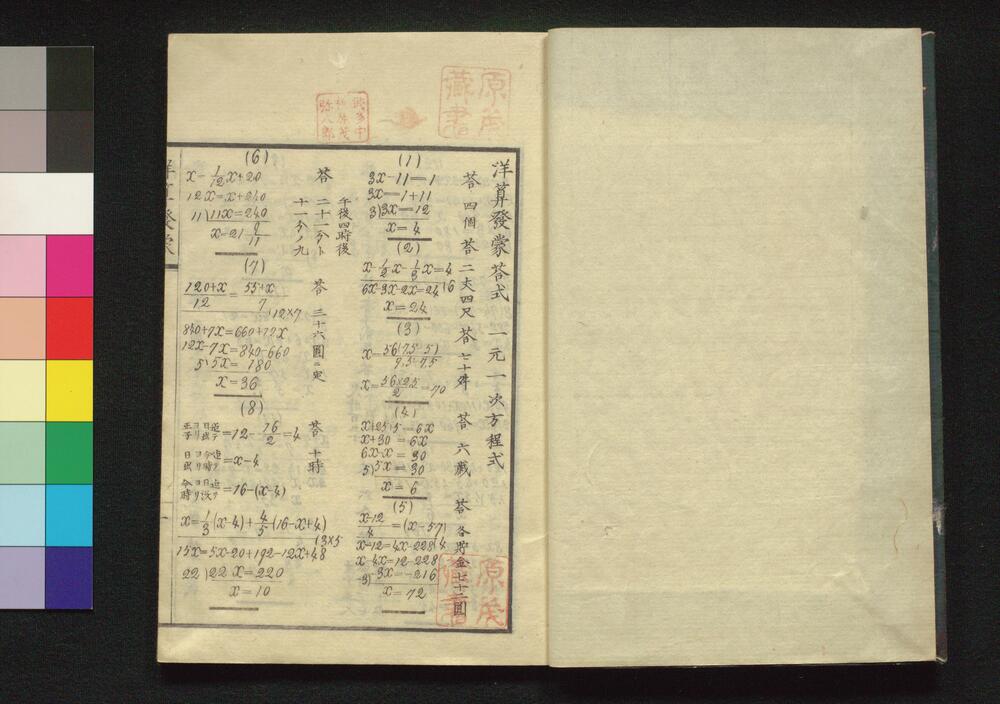 洋算發蒙答式 一元一次方程式
(1)
3x−11=1
3x=1+11
3)3x=12
x=4
答 四個
(2)
x−1/2x−1/3x=4
6x−3x−2x=24
x=24
答 二丈四尺
(3)
x=56(7.5−5)
x=56×2.5/2=70
答 七十
(4)
x+25+5=6x
x+30=6x
6x−x=30
5)5x=30
x=6
答 六歲
(5)
x−12/4=(x−57)
x−12=4x−228
x−4x=12−228
−3)3x=−216
x=72
答 各貯金七十二圓
(6)
x−1/12x+20
12x=x+240
11)11x=240
x=21 9/11
答 午後四時後
二十一分ト
十一分ノ九
(7)
120+x/12=55+x/7
)12×7
840+7x=660+12x
12x−7x=840−660
5)5x=180
x=36
答 三十六圓
(8)
=12−16/2=4
=x−4
=16−(x−4)
x=1/3(x−4)+4/5(16−x+4)
(3×5
15x=5x−20+192−12x+48
22)22x=220
x=10
答 十時
原茂
藏書
原茂
藏書